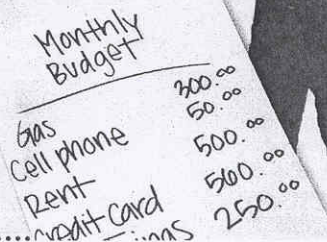 Monthly
Budget
Gas 300.00
Cell phone 50.00
Rent 500.00
Credit Card 560.00
250.00